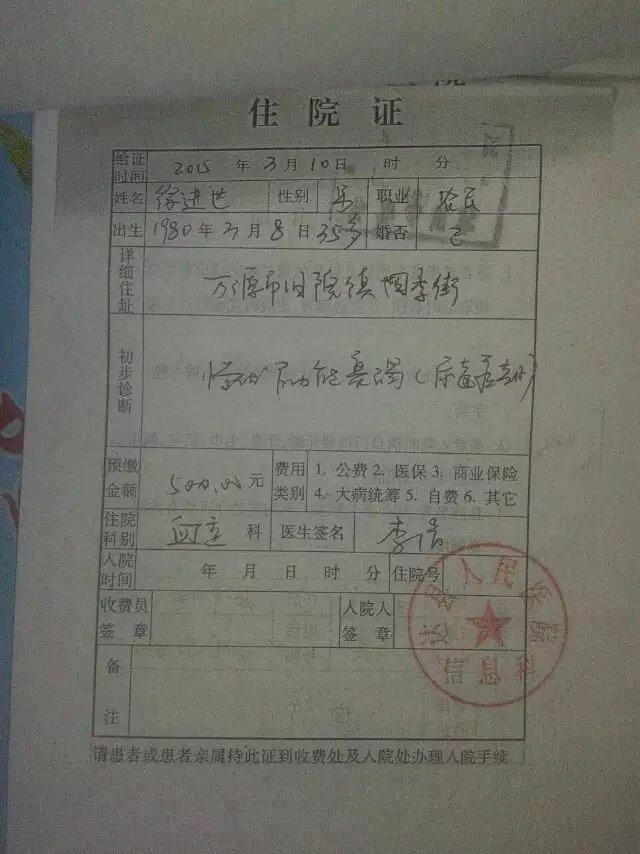 住院证
给证时间 2015年3月10日 时 分
姓名 徐进世 性别 男 职业 农民
出生 1980年3月8日 35岁 婚否 已
详细住址 万源市旧院镇 季街
初步诊断 慢 功能衰竭(尿毒
预缴金额 元 费用类别 1. 公费 2. 医保 3. 商业保险
4. 大病统筹 5. 自费 6. 其它
住院科别 血透 科 医生签名 李
入院时间 年 月 日 时 分 住院号
收费员签章 入院人签章
人民医院
信息科
备注
请患者或患者亲属持此证到收费处及入院处办理入院手续